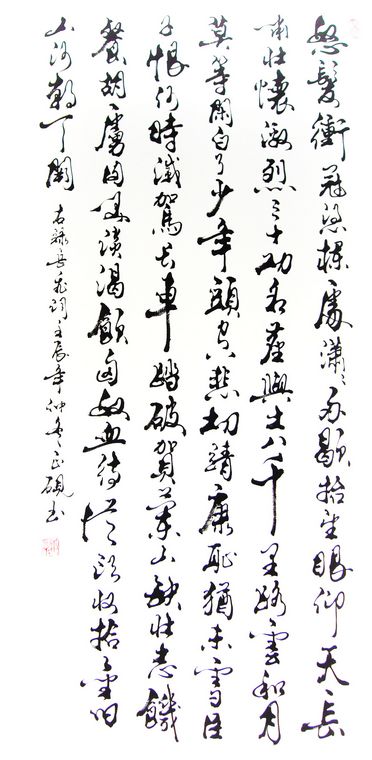 怒髮衝冠憑欄處瀟瀟雨歇抬望眼仰天長
嘯壯懷激烈三十功名塵與土八千里路雲和月
莫等閑白了少年頭空悲切靖康恥猶未雪臣
子恨何時滅駕長車踏破賀蘭山缺壯志饑
餐胡虜肉笑談渴飲匈奴血待從頭收拾舊
山河朝天闕
右錄岳飛詞壬辰年仲冬正硯书